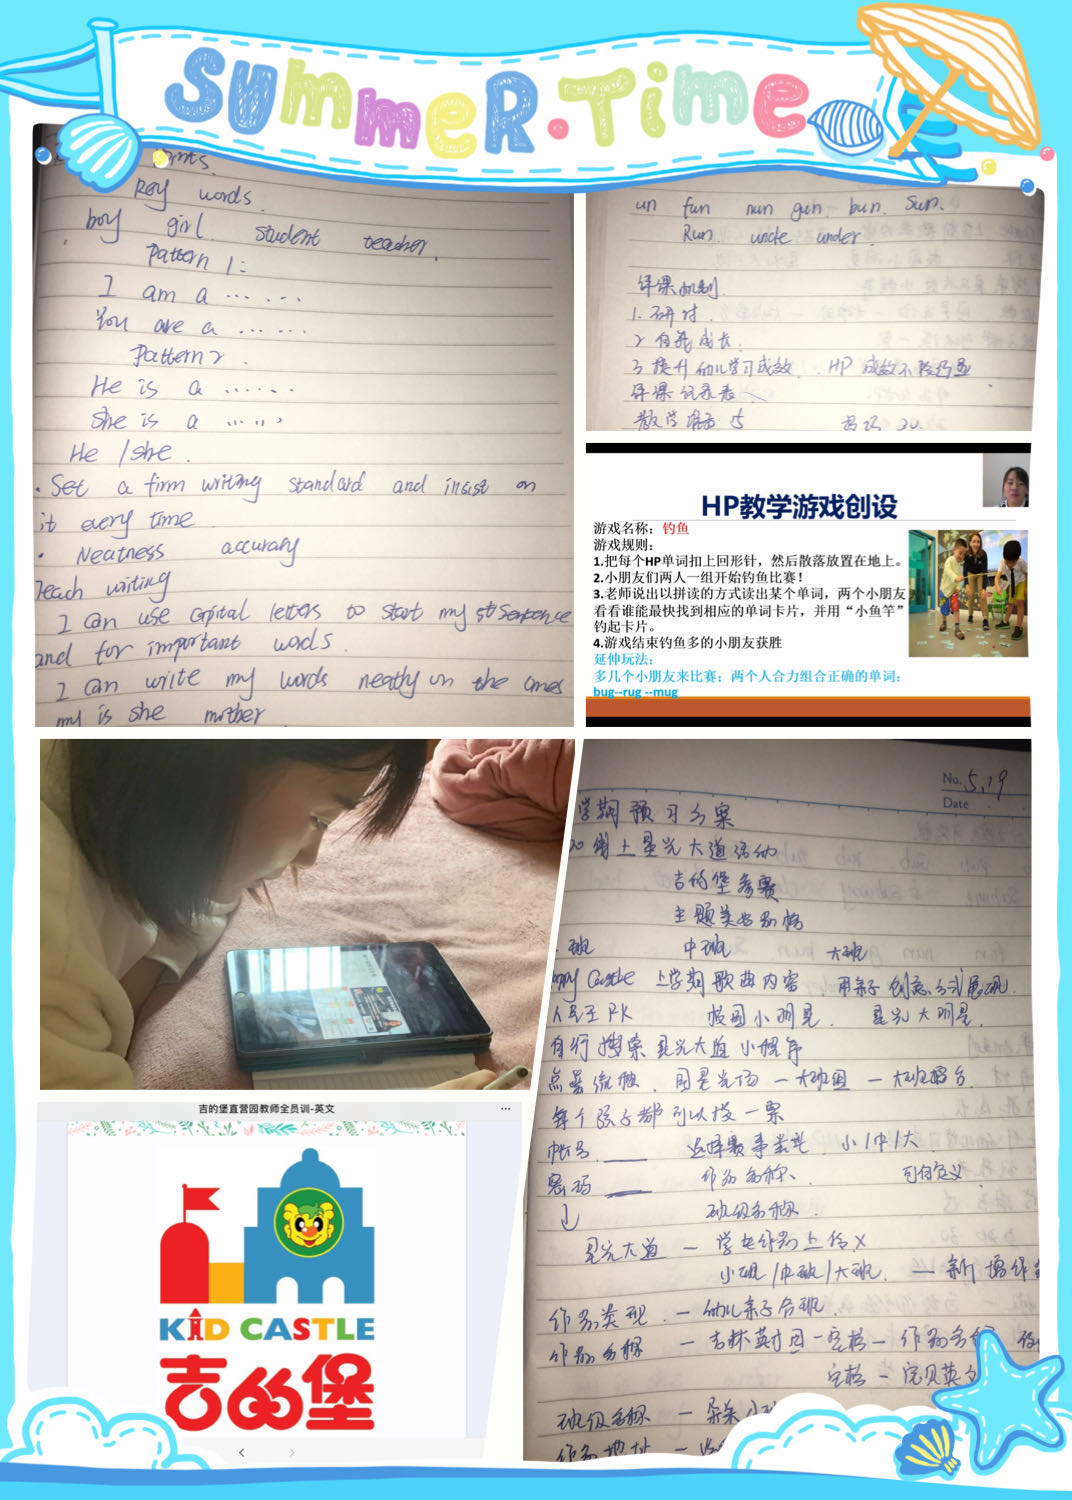 SUMMER·TIME
Key words.
boy girl student teacher.
Pattern 1:
I am a ......
You are a ......
Pattern 2
He is a ......
She is a ......
He / she.
· Set a firm writing standard and insist on
it every time
· Neatness accuracy
Teach writing
I can use capital letters to start my sentence
and for important words.
I can write my words neatly on the
my is she mother
un fun nun gun. bun. Sun.
Run. uncle under.
评课机制
1. 研讨.
2 自我成长.
3 提升幼儿学习成效. HP 成效不
评课记录表
HP教学游戏创设
游戏名称：钓鱼
游戏规则：
1.把每个HP单词扣上回形针，然后散落放置在地上。
2.小朋友们两人一组开始钓鱼比赛！
3.老师说出以拼读的方式读出某个单词，两个小朋友
看看谁能最快找到相应的单词卡片，并用“小鱼竿”
钓起卡片。
4.游戏结束钓鱼多的小朋友获胜
延伸玩法：
多几个小朋友来比赛；两个人合力组合正确的单词：
bug--rug --mug
No. 5.19
Date
学期预习方案
线上星光大道活动
吉的堡参赛
主题类
班 中班 大班
Castle 上学期歌曲内容 用亲子创意方式展现.
PK 校园小明星. 星光大明星.
自行搜索星光大道小程序
每个孩子都可以投一票
帐号 选择赛事类型 小/中/大
密码 作品名称. 可自定义
班级名称.
星光大道 — 学生作品上传
小班/中班/大班. — 新增作品
作品类型. — 幼儿亲子合班.
作品名称 — 吉林英村园—空格—作品名称
空格 — 宝贝英文
班级名称 —
作品地址 —
吉的堡直营园教师全员训-英文
KID CASTLE
吉的堡